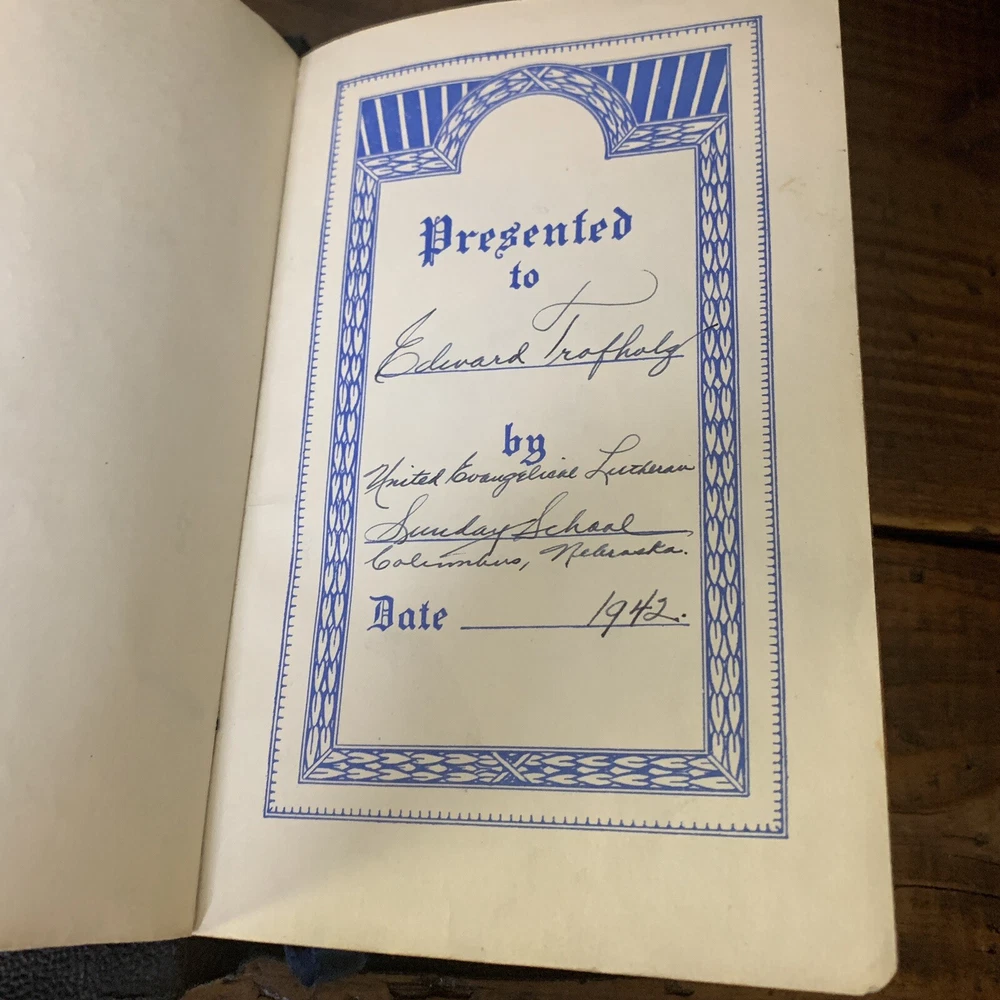 Presented
to
Edward Trofholz
by
United Evangelical Lutheran
Sunday School
Columbus, Nebraska.
Date 1942.